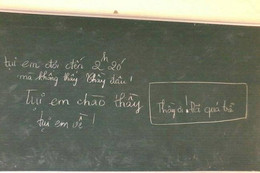 tụi em đợi đến 2h20'
mà không thấy thầy đâu!
Tụi em chào thầy
tụi em về!
Thầy ơi! Đã quá trễ